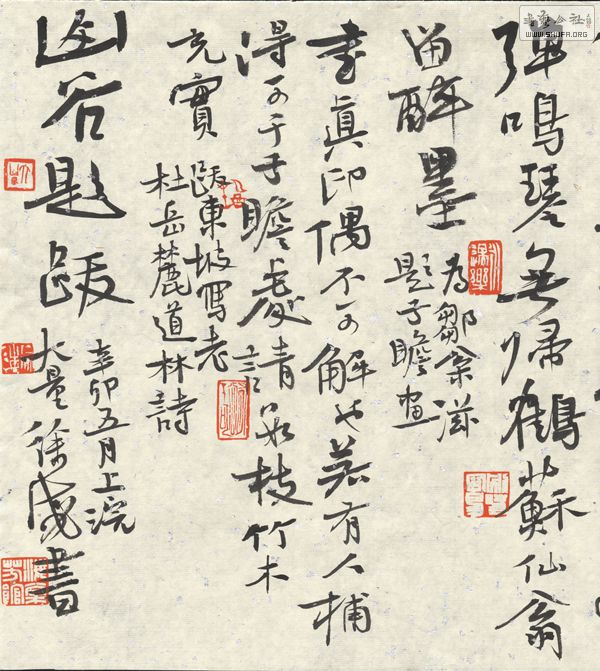 彈鳴琴無歸鶴蘇仙翁
留醉墨
為鄒
題子瞻画
書真印偶不可解也若有人補
得可于子瞻處請枝竹木
充實
跋東坡寫老
杜岳麓道林詩
山谷題跋
辛卯五月上浣
大量徐書
WWW.SHUFA.ORG